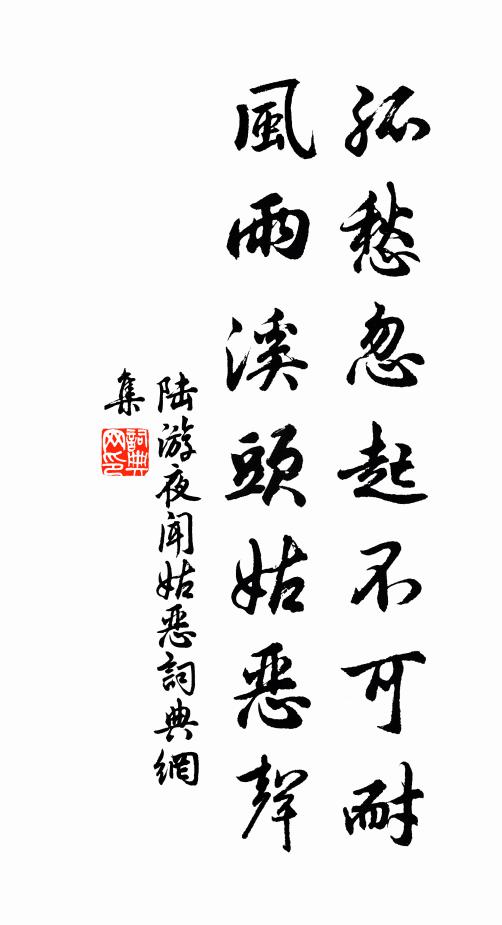 孤愁忽起不可耐
風雨溪頭姑惡聲
陆游夜闻姑惡詞典網
集
詞典
网印